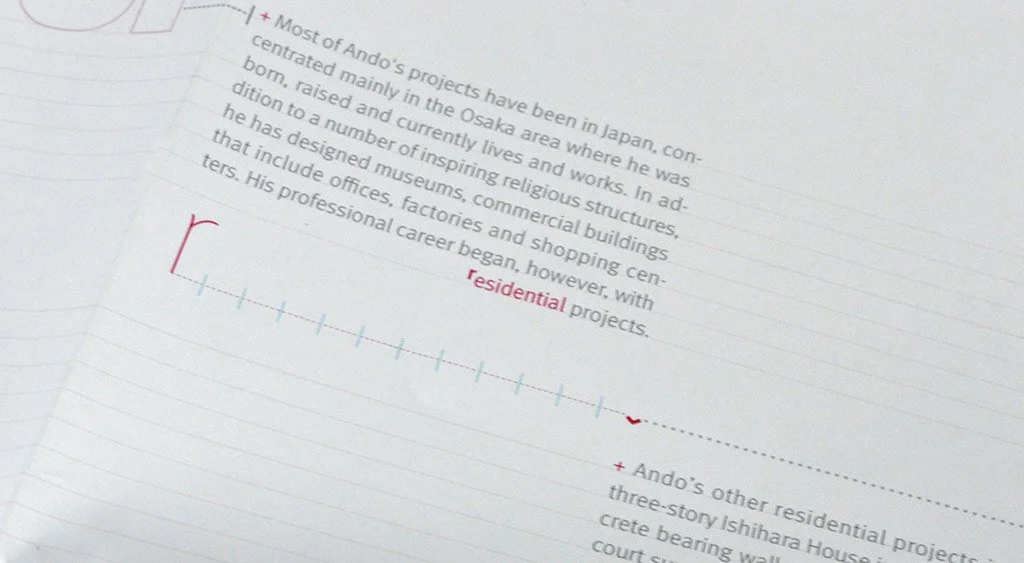 + Most of Ando's projects have been in Japan, con-
centrated mainly in the Osaka area where he was
born, raised and currently lives and works. In ad-
dition to a number of inspiring religious structures,
he has designed museums, commercial buildings
that include offices, factories and shopping cen-
ters. His professional career began, however, with
residential projects.
r
+ Ando's other residential projects
three-story Ishihara House
crete bearing
court